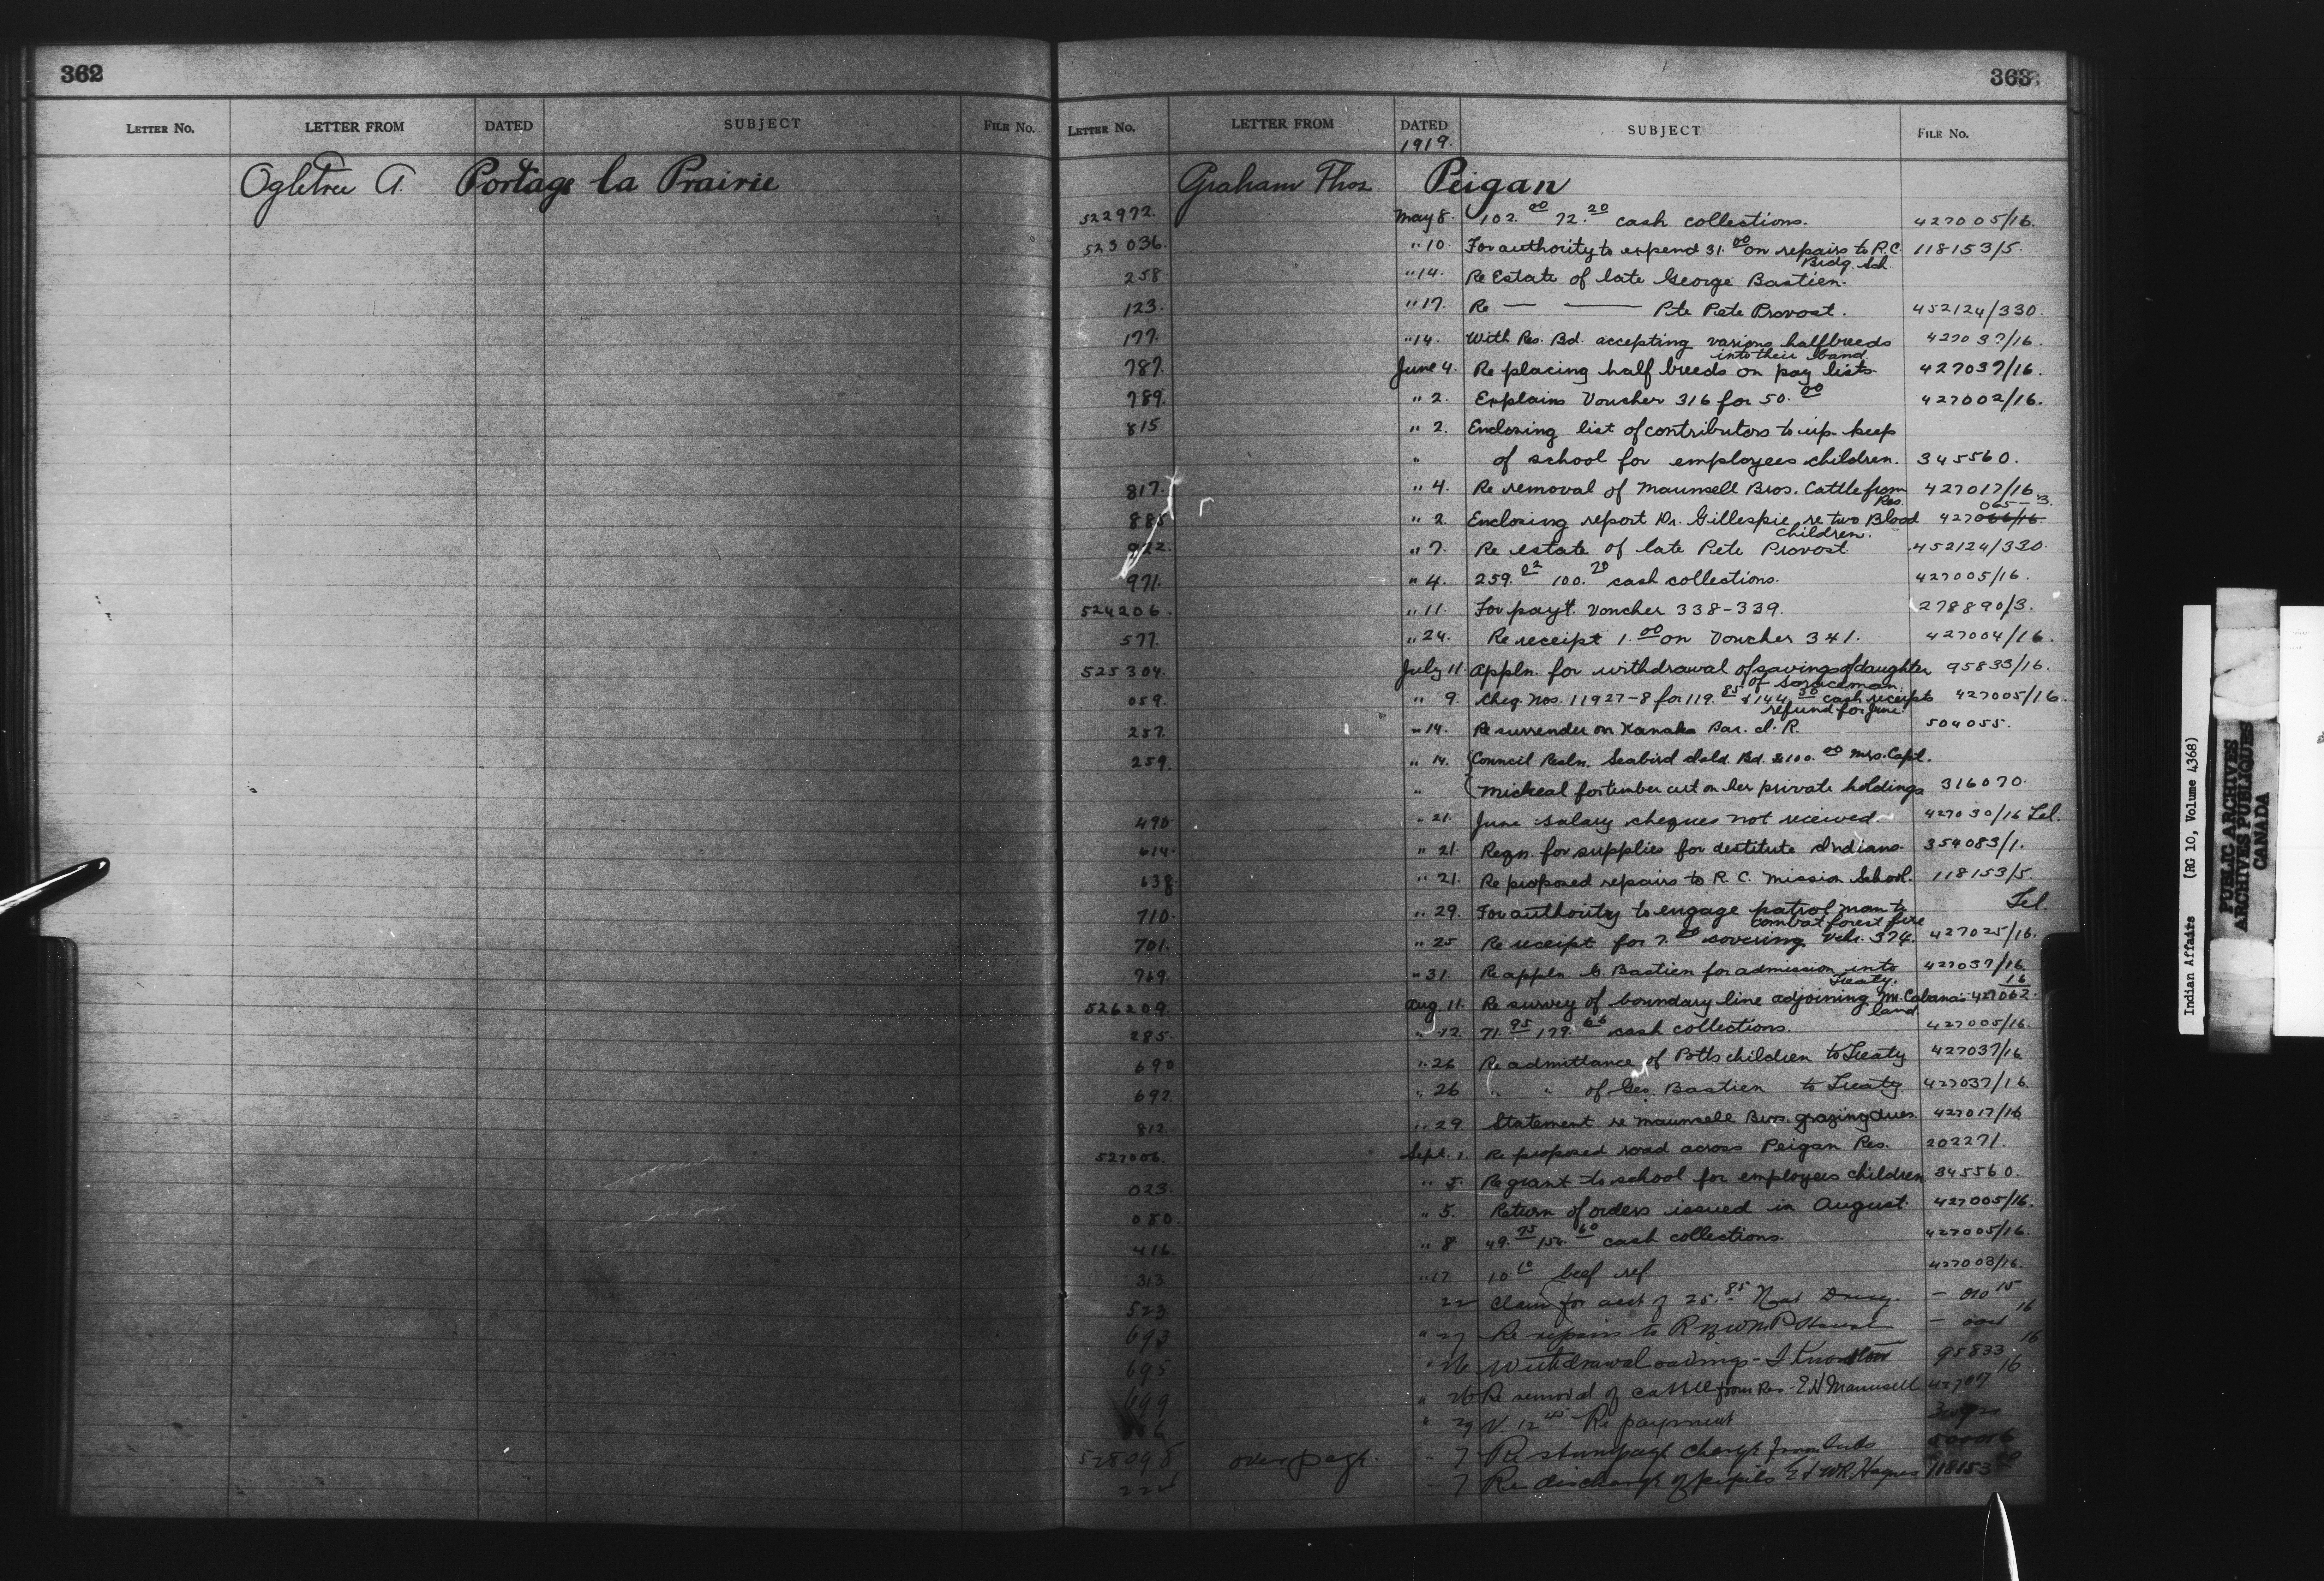 362
LETTER No. LETTER FROM DATED SUBJECT FILE No.
Ogletree A. Portage la Prairie
363
LETTER No. LETTER FROM DATED SUBJECT FILE No.
1919.
Graham Thos. Peigan
522972. May 8. 102.00 72.20 cash collections. 427005/16.
523036. " 10 For authority to expend 31.00 on repairs to R.C. Bldg. Sch. 118153/5.
258 " 14. Re Estate of late George Bastien.
123. " 17. Re — —— Pete Provost. 452124/330.
177. " 14. With Res. Bd. accepting various halfbreeds into their band 427037/16.
787. June 4. Re placing half breeds on pay lists 427037/16.
789. " 2. Explains Voucher 316 for 50.00 427002/16.
815 " 2. Enclosing list of contributors to up-keep
" of school for employees children. 345560.
817. " 4. Re removal of Maunsell Bros. Cattle from Res. 427017/16
885 " 2. Enclosing report Dr. Gillespie re two Blood Children. 427066/16 065-3.
922. " 7. Re estate of late Pete Provost. 452124/330.
971. " 4. 259.02 100.20 cash collections. 427005/16.
524206. " 11. For payt. Voucher 338-339. 278890/3.
577. " 24. Re receipt 1.00 on Voucher 341. 427004/16.
525304. July 11 Appln. for withdrawal of savings of daughter of 95833/16.
059. " 9. Cheq. Nos. 11927-8 for 119.85 & 144.50 cash receipts refund for June. 427005/16.
257. " 14. Re surrender on Kanaka Bar. I.R. 504055.
259. " 14. Council Resln. Seabird Isld. Bd. $100.00 Mrs. Capt.
" Micheal for timber cut on her private holdings 316070.
490. " 21. June salary cheques not received. 427030/16 Tel.
614. " 21. Reqn. for supplies for destitute Indians. 354083/1.
638 " 21. Re proposed repairs to R.C. Mission School. 118153/5.
710. " 29. For authority to engage patrol man to combat forest fire Tel.
701. " 25 Re receipt for 7.00 covering Vchr. 374. 427025/16.
769. " 31. Re appln. G. Bastien for admission into Treaty. 427037/16.
526209. Aug. 11. Re survey of boundary line adjoining Mr. Cabana's land 427062. 16
285. " 12. 71.95 179.66 cash collections. 427005/16.
690 " 26 Re admittance of Potts children to Treaty 427037/16
692. " 26 " " of Geo. Bastien to Treaty 427037/16.
812. " 29. Statement re Maunsell Bros. grazing dues. 427017/16
527006. Sept. 1. Re proposed road across Peigan Res. 202271.
023. " 5. Re grant to school for employees children 345560.
080. " 5. Return of orders issued in August. 427005/16.
416. " 8 49.75 154.60 cash collections. 427005/16.
313 " 17 10.10 beef ref 427003/16.
523 22 Claim for acct of 25.85 Nat Drug. – 010 15
693 " 27 Re repairs to R.N.W.M.P. – 16
695 " 26 Withdrawal savings – 95833 16
699 " 26 Re removal of cattle from Res – E H Maunsell 427017 16
" 29 V. 12.45 Re payment
528098 over page. " 7 Re stumpage charge
" 7 Re discharge of pupils E & W R Haynes 118153
Indian Affairs (RG 10, Volume 4368)
PUBLIC ARCHIVES
ARCHIVES PUBLIQUES
CANADA